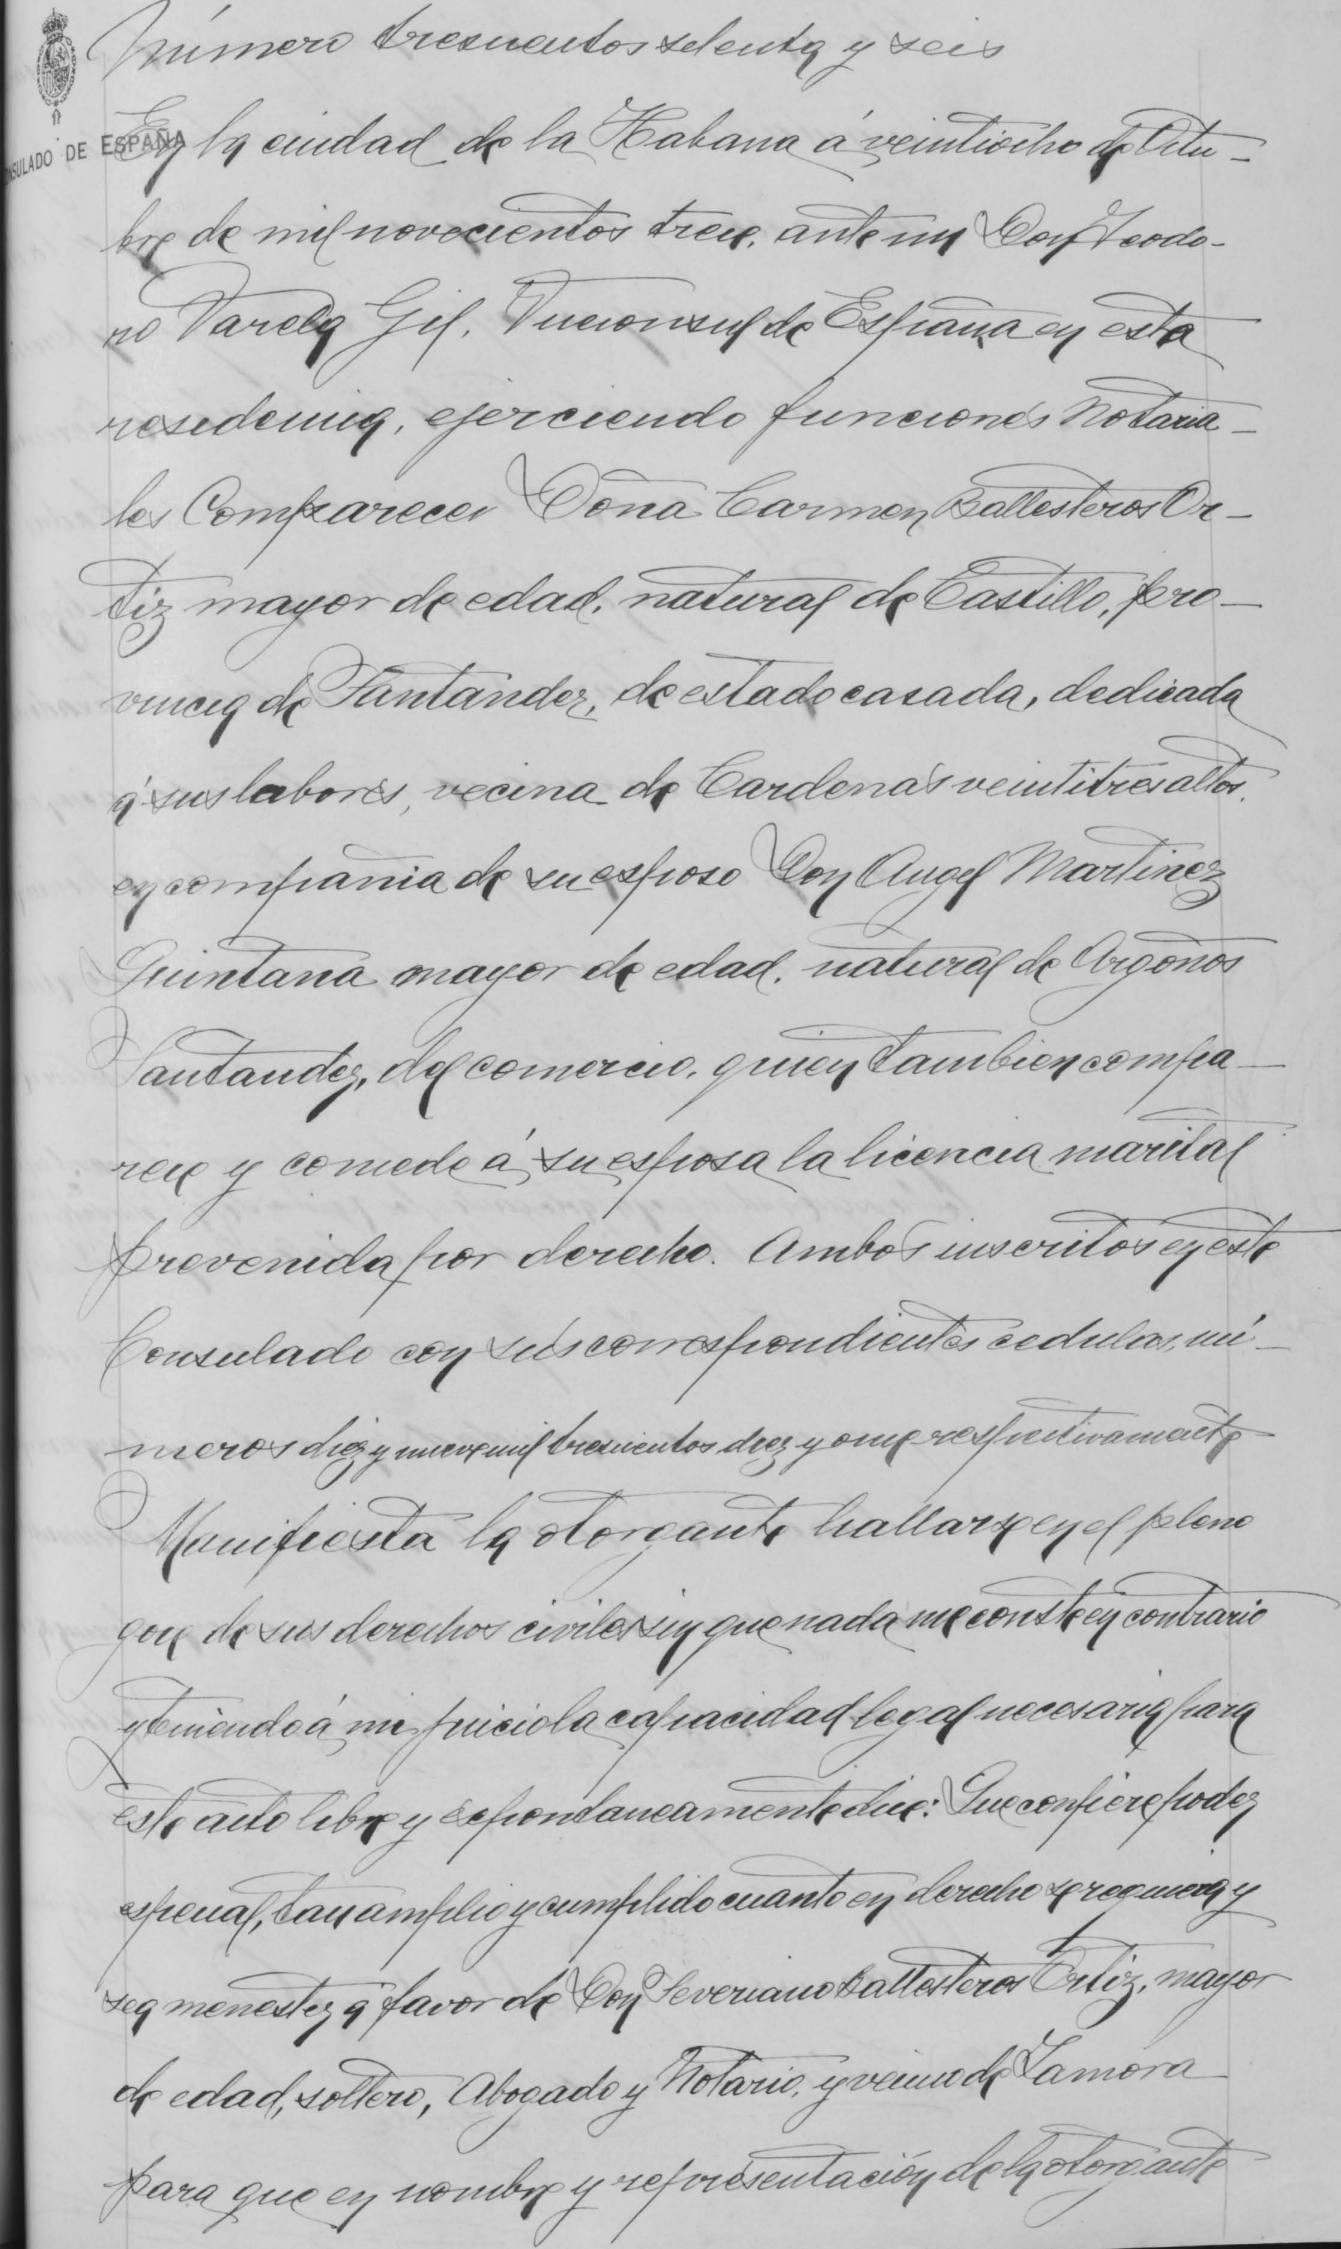 Número trescientos setenta y seis
CONSULADO DE ESPAÑA
En la ciudad de la Habana á veintiocho de Octu-
bre de mil novecientos trece, ante mi Don Teodo-
ro Varela Gil, Vicecónsul de España en esta
residencia, ejerciendo funciones Notaria-
les Comparece: Doña Carmen Ballesteros Or-
tiz mayor de edad, natural de Castillo, pro-
vincia de Santander, de estado casada, dedicada
á sus labores, vecina de Cardenas veintitres altos,
en compañia de su esposo Don Angel Martinez
Quintana mayor de edad, natural de Argoños
Santander, del comercio, quien tambien compa-
rece y concede á su esposa la licencia marital
prevenida por derecho. Ambos inscritos en este
Consulado con sus correspondientes cedulas, nú-
meros diez y nueve mil trescientos diez y once respectivamente
Manifiesta la otorgante hallarse en el pleno
goce de sus derechos civiles sin que nada me conste en contrario
y teniendo á mi juicio la capacidad legal necesaria para
este acto libre y espontaneamente dice: Que confiere poder
especial, tan amplio y cumplido cuanto en derecho se requiera y
sea menester á favor de Don Severiano Ballesteros Ortiz, mayor
de edad, soltero, Abogado y Notario, y vecino de Zamora
para que en nombre y representación de la otorgante